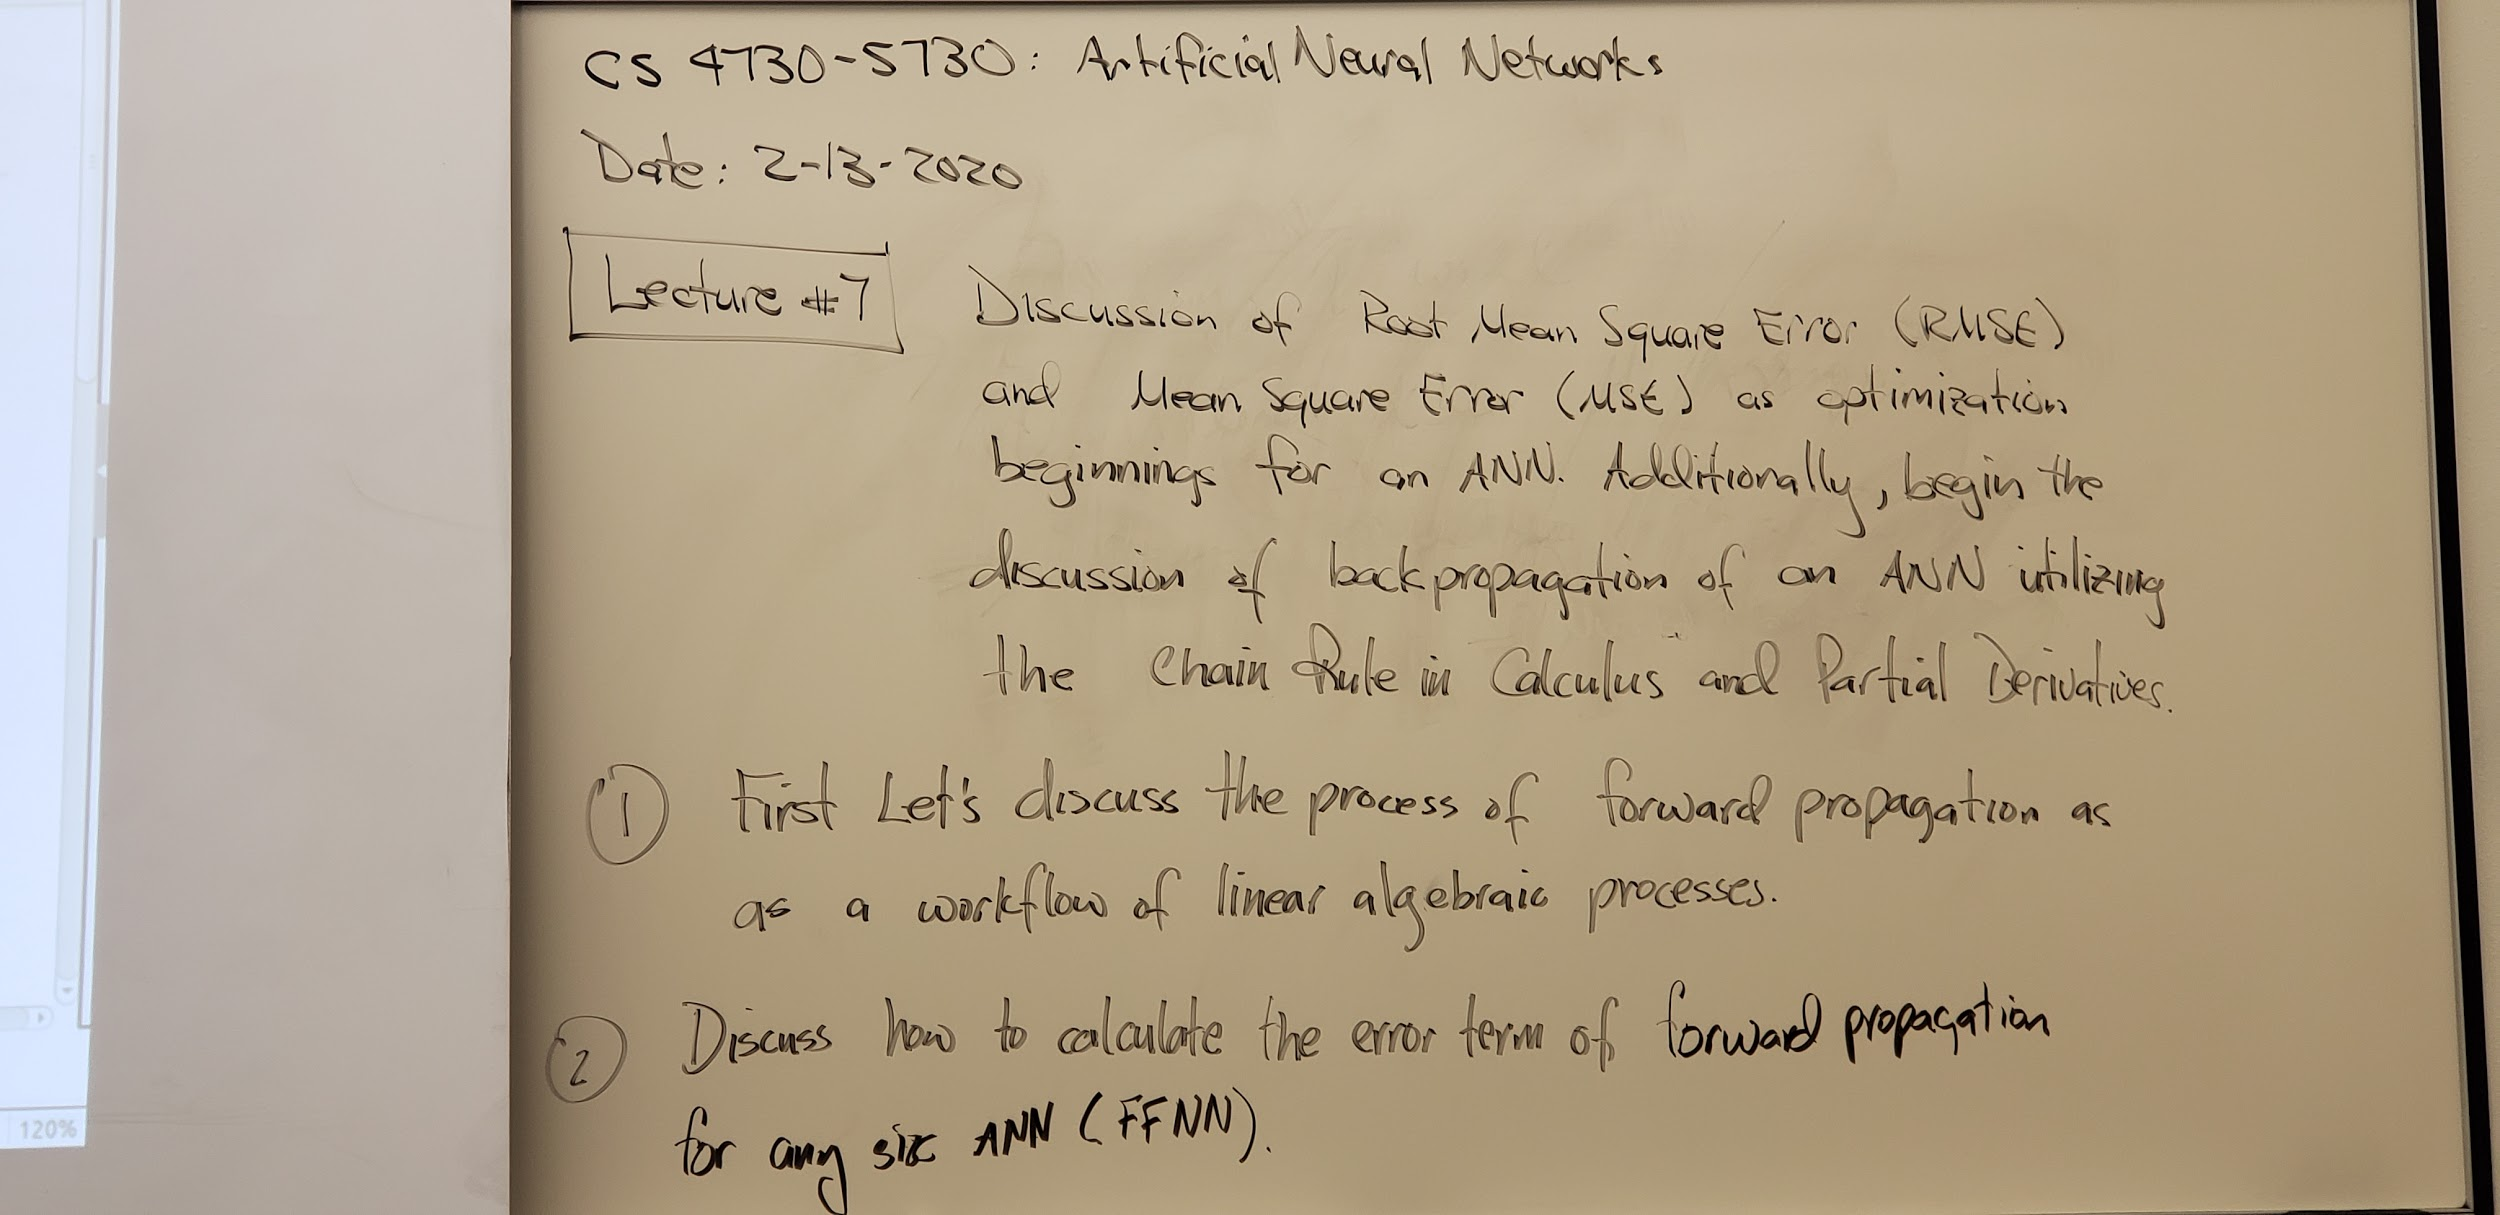 CS 4730-5730: Artificial Neural Networks
Date: 2-13-2020
Lecture #7
Discussion of Root Mean Square Error (RMSE)
and Mean Square Error (MSE) as optimization
beginnings for an ANN. Additionally, begin the
discussion of backpropagation of an ANN utilizing
the Chain Rule in Calculus and Partial Derivatives.
1 First Let's discuss the process of forward propagation as
as a workflow of linear algebraic processes.
2 Discuss how to calculate the error term of forward propagation
for any ANN (FFNN).
120%